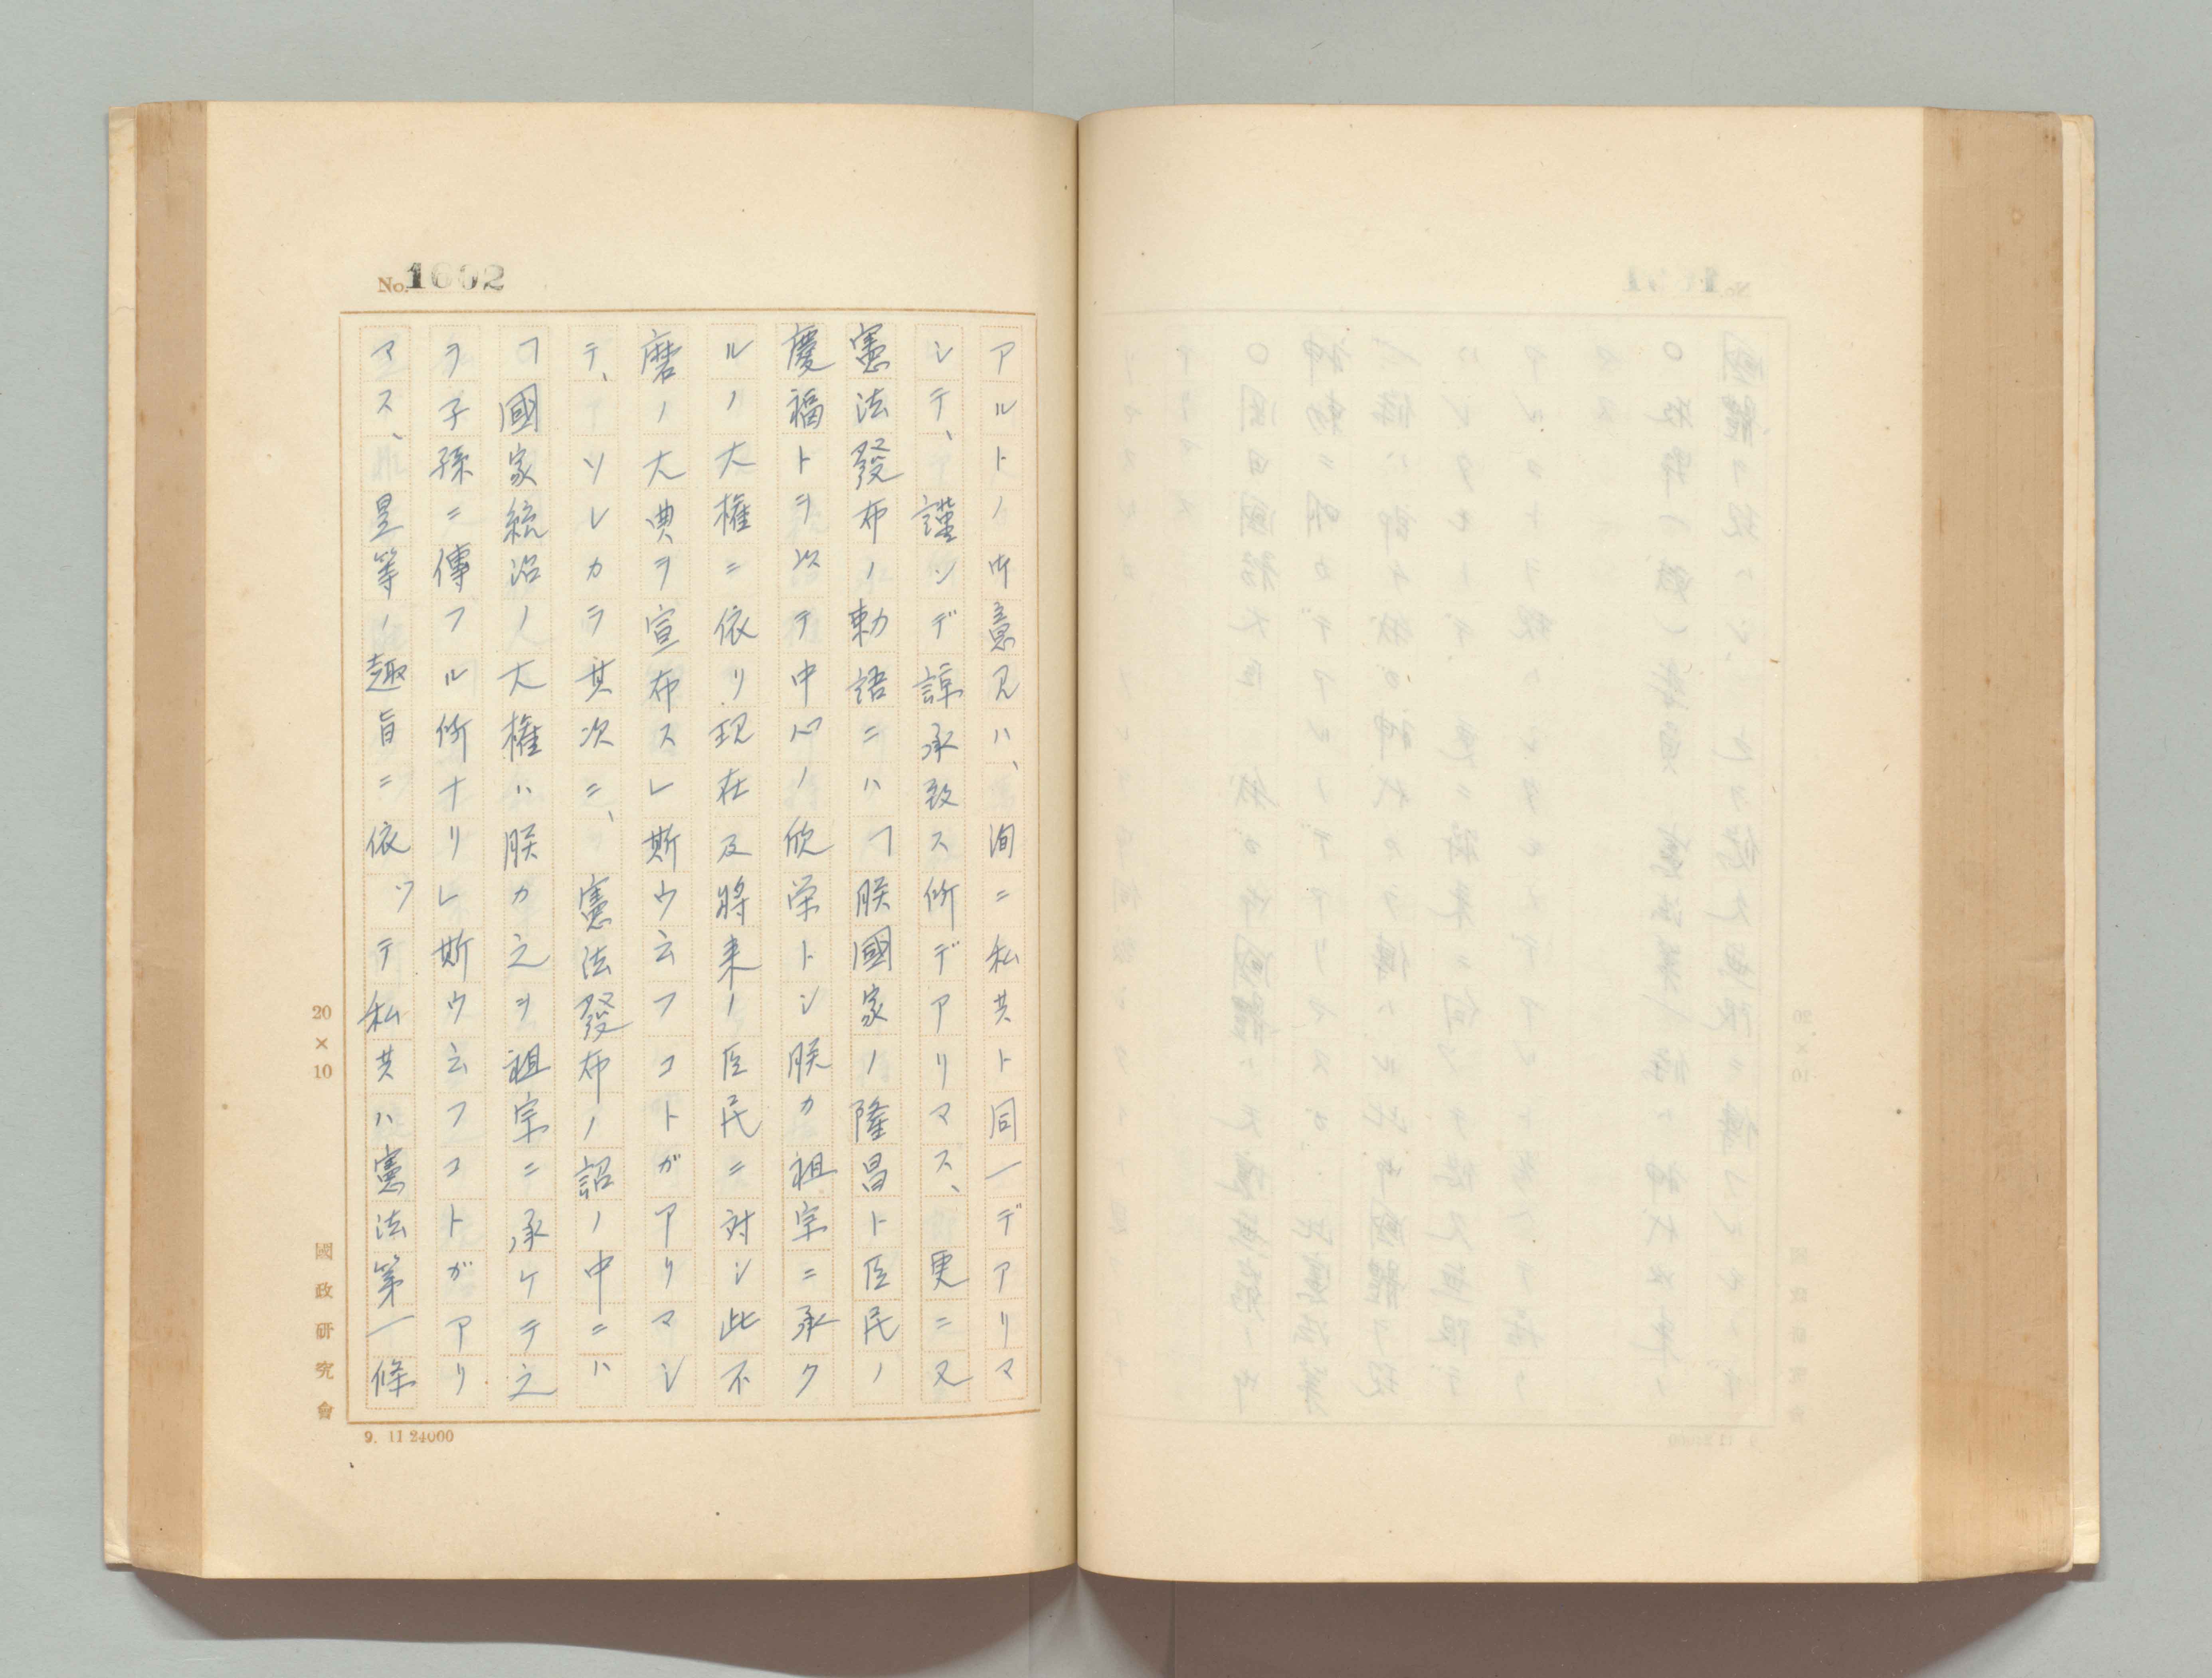 No. 1602
アルトノ御意見ハ、洵ニ私共ト同一デアリマ
シテ、謹ンデ諒承致ス所デアリマス、更ニ又
憲法發布ノ勅語ニハ「朕國家ノ隆昌ト臣民ノ
慶福トヲ以テ中心ノ欣栄トシ朕カ祖宗ニ承ク
ルノ大權ニ依リ現在及將来ノ臣民ニ対シ此不
磨ノ大典ヲ宣布スレ斯ウ云フコトガアリマシ
テ、ソレカラ其次ニ、憲法發布ノ詔ノ中ニハ
「國家統治ノ大權ハ朕カ之ヲ祖宗ニ承ケテ之
ヲ子孫ニ傳フル所ナリレ斯ウ云フコトガアリ
マス、是等ノ趣旨ニ依ッテ私共ハ憲法第一條
20×10
國政研究會
9. 11 24000